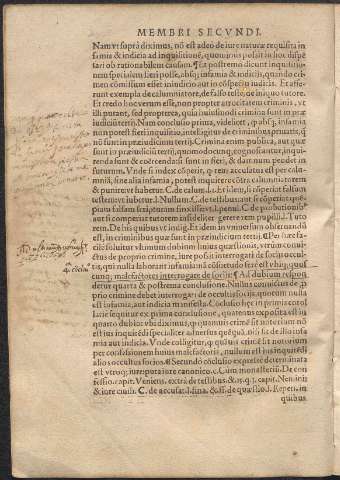 MEMBRI SECVNDI.
Nam vt suprà diximus, nõ est adeo de iure naturæ requisita in
famia & indicia ad inquisitionẽ, quominus possit in hoc dispẽ
sari ob rationabilem causam. ¶ Et postremo dicunt inquisitio
nem specialem fieri posse, absq; infamia & indiciis, quando cri
men cõmissum esset in iudicio aut in cõspectu iudicis. Et affe-
runt exempla de calumniatore, de falso teste, de iniquo tutore.
Et credo hoc verum esse, non propter atrocitatem criminis, vt
illi putant, sed propterea, quia huiusmodi crimina sunt in præ
iudiciũ tertij. Nam conclusio prima, videlicet, quòd absq; infamia
non potest fieri inquisitio, intelligitur de criminibus priuatis, q̃
nõ sunt in præiudicium tertij. Crimina enim publica, aut quæ
sunt in præiudiciũ tertij, quomodocunq; cognoscantur, inqui-
renda sunt & coërcenda si sunt in fieri, & damnum prodet in
futurum. Vnde si iudex cõperit, q reus accusatus est per calu-
mniã, sine alia infamia, potest inquirere cõtra calumniatorem
& punire vt habetur. C. de calum. l. 1. Et idem, si cõperiat falsum
testem vt iubetur l. Nullum. C. de testibus aut si cõperiat que-
piam falsam scripturam finxisse vt. l. penul. C. de probationib⁹
aut si comperiat tutorem infideliter gerere rem pupilli. l. Tuto
rem. De his quibus vt indig. Et idem in vniuersum obseruandũ
est, in criminibus quæ sunt in præiudicium tertij. ¶ Per iure fa-
cilè soluitur vltimum dubium huius quæstionis, vtrùm conui-
ctus de proprio crimine, iure possit interrogari de socijs occul-
tis, qui nulla laborant infamia:
cunq; malefactores interrogare de socijs. ¶ Ad dubium respon
detur quarta & postrema conclusione. Nullus conuictus de p̱
prio crimine debet interrogari de occultis socijs, quorum nulla
est infamia, aut indicia manifesta. Cõclusio hęc in primis ex to-
ta lite sequitur ex prima conclusione, quatenus exposita est in
quarto dubio: vbi diximus, q quantuncunque crimẽ sit notoriũ nõ
est ius inquirẽdi specialiter aduersus quẽquã, nisi sit de illo infa
mia aut indicia. Vnde colligitur, q quãuis crimẽ sit notorium
per confessionem huius malefactoris, nullum est ius inquirẽdi
alios occultos socios. ¶ Secundo cõclusio expressè determinata
est vtroq; iure: puta iure canonico. c. Cum monasteriũ. De con
fessio. & capit. Veniens. extrà de testibus. & 15. q. 3. capit. Nemini:
& iure ciuili. C. de accusat. l. fina. & ff. de quæstio. l. Repeti. in
quibus